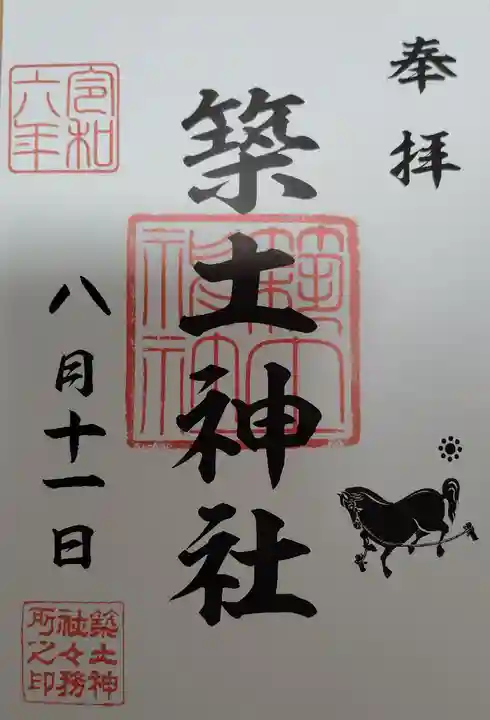 奉拝
築土神社
築土神社
令和六年
八月十一日
築土神社々務所之印